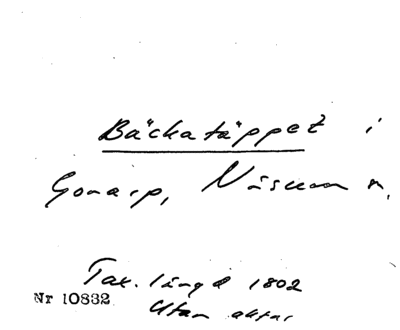 Bäckatäppet i
Gonarp, Nüsum n.
Tax. längd 1802
Nr 10832
Utan aktnr